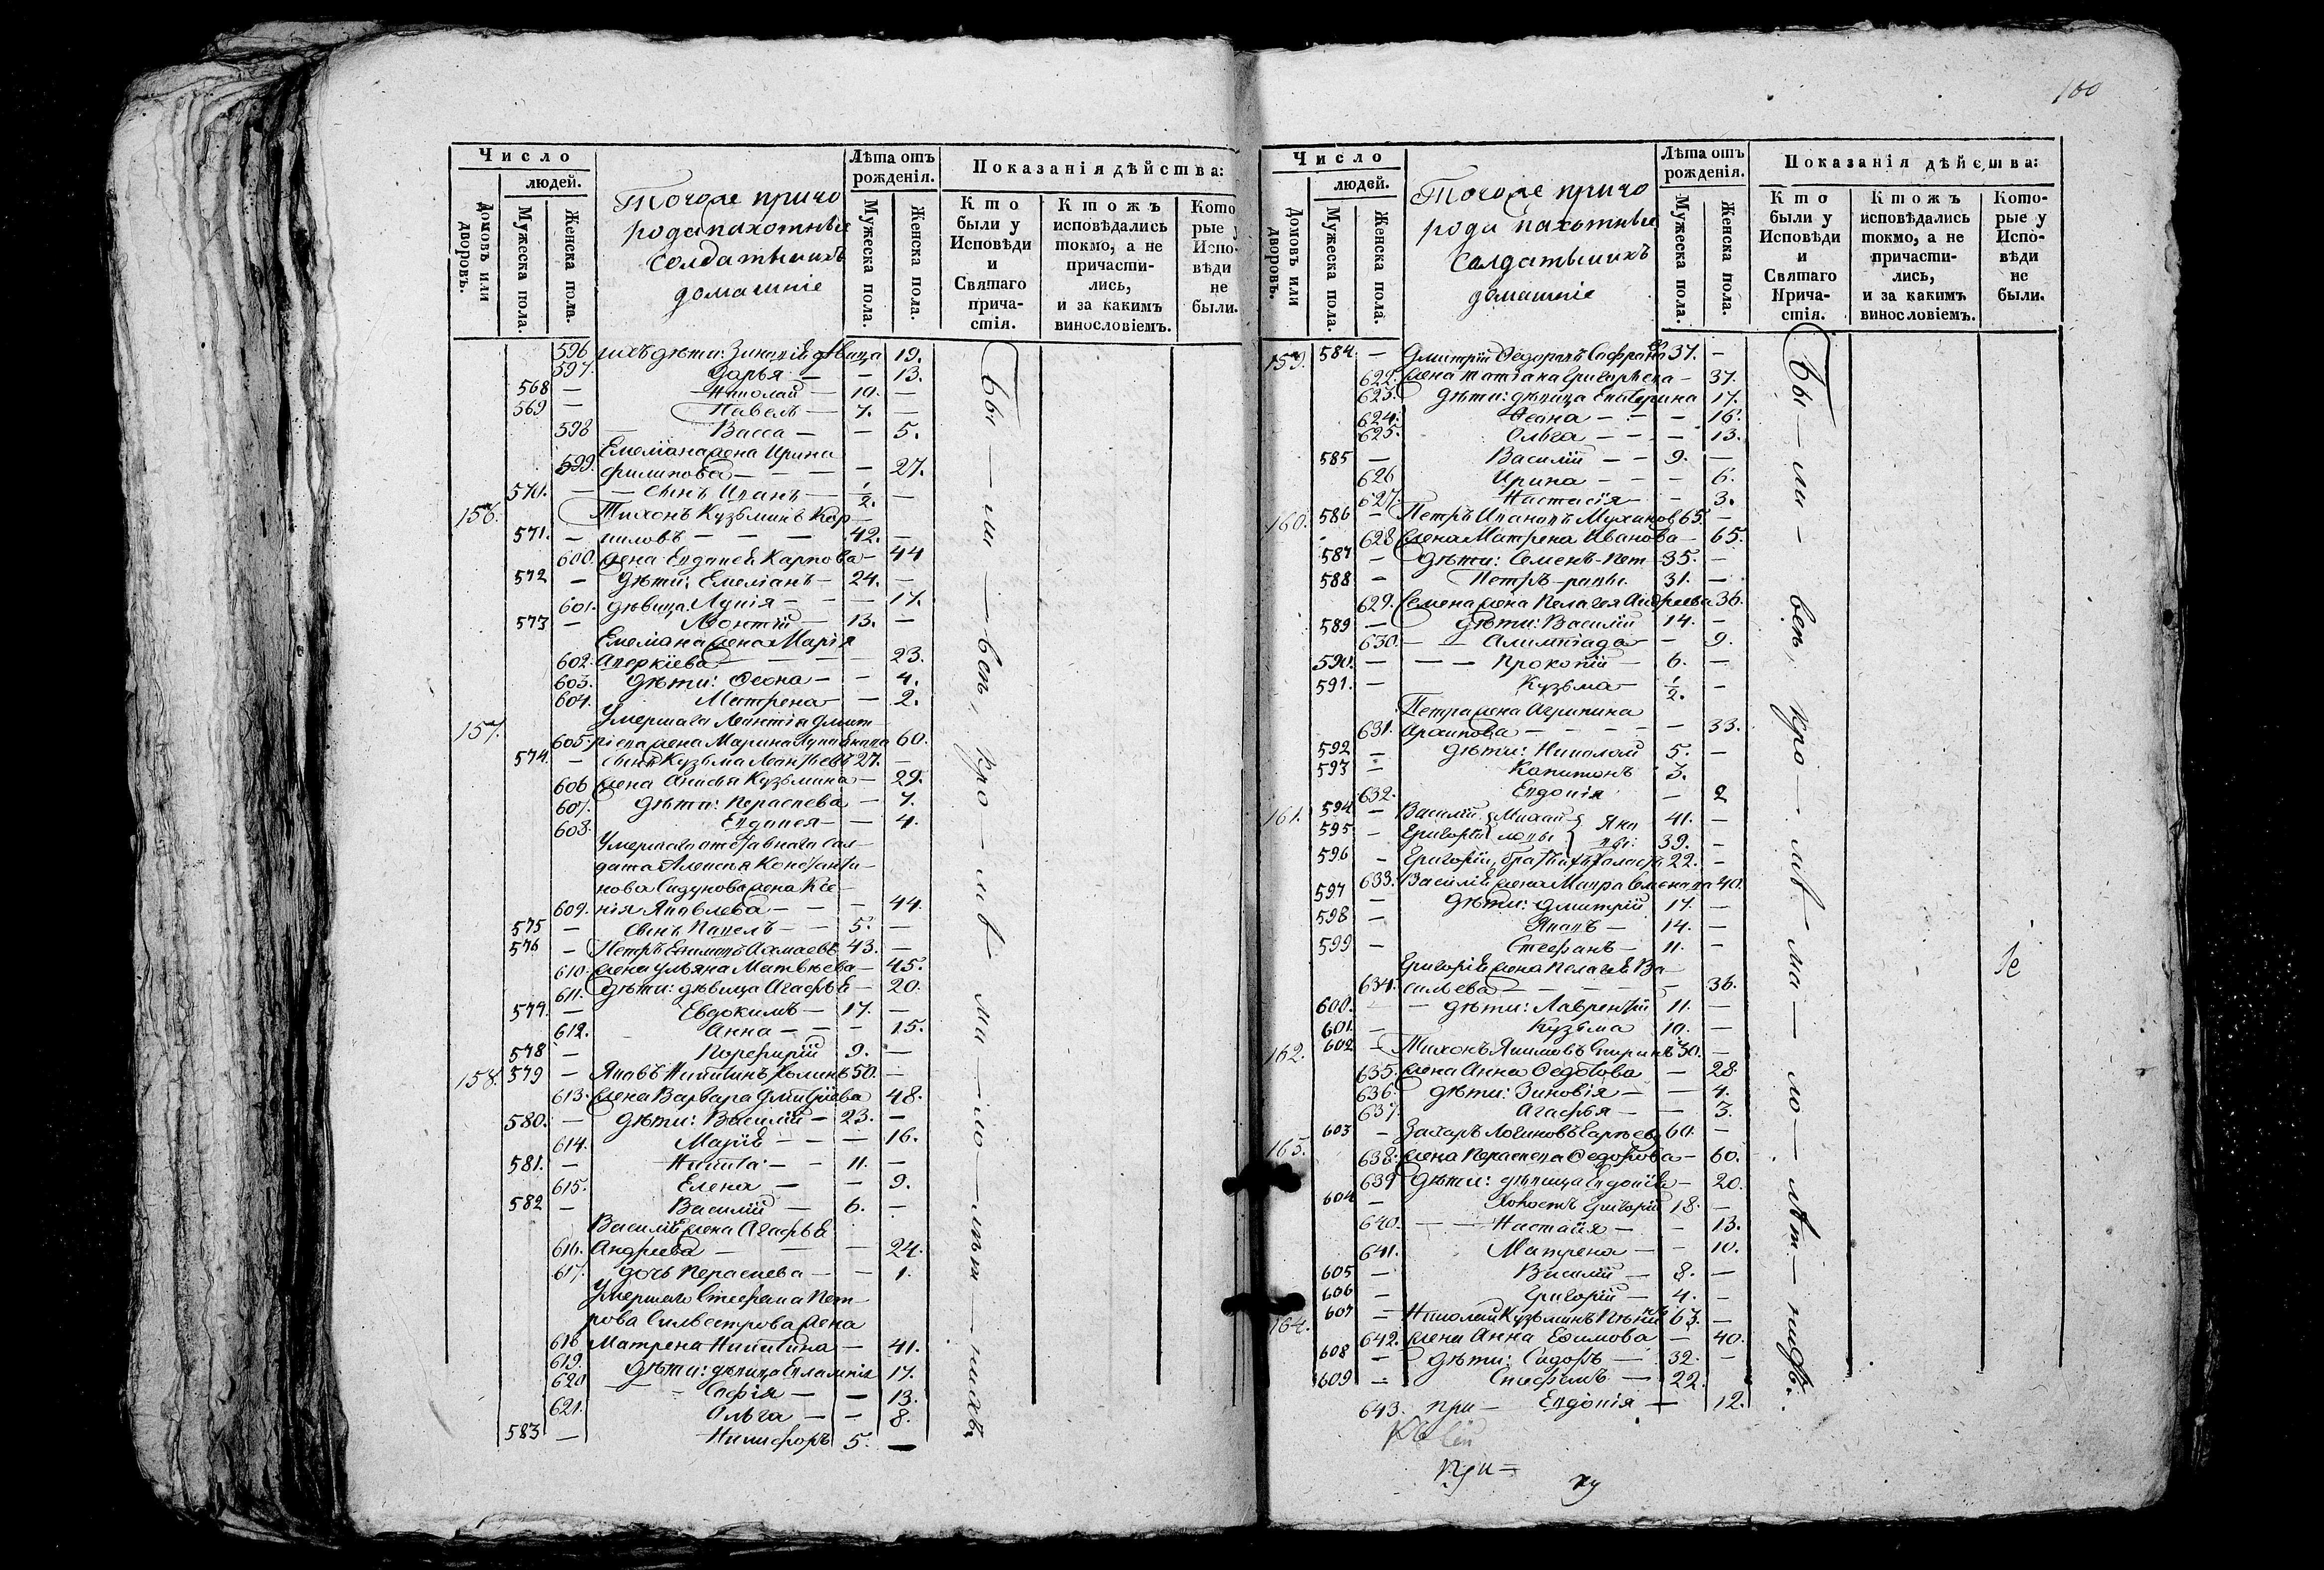 Число
людей.
Домовъ или дворовъ.
Мужеска пола.
Женска пола.
Тогоже приго
рода пахотныхъ
Солдатъ и ихъ
домашніе
Лѣта отъ
рожденія.
Мужеска пола.
Женска пола.
Показанія дѣйства:
Кто
были у
Исповѣди
и
Святаго
прича-
стія.
Ктожъ
исповѣдались
токмо, а не
причасти-
лись,
и за какимъ
винословіемъ.
Кото
рые у
Испо-
вѣди
не
были.
596 ихъ дѣти: девица 19.
597. Дарья — — 13.
568 — Николай — 10. —
569 — Павелъ — 7. —
598 — Васса — — 5.
Емельяна жена Ирина
599. Филипова — — — — 27.
570. — — сынъ Иванъ — 1/2. —
156. Тихонъ Кузьминъ Кор-
571. — ниловъ — — — 42. —
600. жена Евдокея Карпова — 44
572 — Дѣти: Емеліанъ — 24. —
601. девица — — — 17.
573 — Леонтій — 13. —
Емеліана жена Марія
602. Аверкіева — — — — 23.
603. Дѣти: Ѳеона — — 4.
604. Матрена — — 2.
157. Умершаго Леонтія Дмит
605. ріева жена Марина 60.
574. — сынъ Кузьма Леонтьевъ 27. —
606 жена Анисья Кузьмина — 29.
607. Дѣти: Параскева — 7.
608. Евдокея — — 4.
Умершаго отставнаго сол-
дата Алексея Константи-
нова жена Ксе-
609. нія Яковлева — — — 44.
575 — сынъ Павелъ — — 5. —
576 — Петръ Ефимовъ 43. —
610. жена Ульяна Матвѣева — 45.
611. Дѣти: дѣвица Агафья — 20.
577. — Евдокимъ — 17. —
612. Анна — — — 15.
578 — Порфирій 9. —
158. 579 — Яковъ Никитинъ 50. —
613. жена Варвара Дмитріева 48.
580. — Дѣти: Василій — 23. —
614. Марія — — — 16.
581. — Никита — — 11. —
615. Елена — — 9.
582 — Василій — 6. —
Василія жена Агафья
616. Андреева — — — 24.
617. дочь Параскева — — 1.
Умершаго Стефана Пет
рова Сильвестрова жена
618 Матрена Никитина — 41.
619. Дѣти: девица Евлампія 17.
620 — — Софія — — 13.
621. Ольга — — 8.
583 — Никифоръ 5. —
Бы — ли — въ — про — ло — мъ
100
Число
людей.
Домовъ или дворовъ.
Мужеска пола.
Женска пола.
Тогоже приго
рода пахотныхъ
Солдатъ и ихъ
домашніе
Лѣта отъ
рожденія.
Мужеска пола.
Женска пола.
Показанія дѣйства:
Кто
были у
Исповѣди
и
Святаго
Прича-
стія.
Ктожъ
исповѣдались
токмо, а не
причасти-
лись,
и за какимъ
винословіемъ.
Кото-
рые у
Испо-
вѣди
не
были.
159. 584 — Дмитрій Федоровъ 37. —
622. жена Татіана Григорьева — 37.
623. Дѣти: дѣвица Екатерина 17.
624. Ѳеона — — — 16.
625. Ольга — — — 13.
585 — Василій — — 9. —
626 Ирина — — — 6.
627. Настасія — — 3.
160. 586 — Петръ Ивановъ Мухановъ 65. —
628 жена Матрена Иванова — 65.
587 — Дѣти: Семенъ-Пет 35. —
588 — Петръ-ровы. 31. —
629. Семена жена Пелагея Андреева 36.
589 — дѣти: Василій 14. —
630. — — Алимпіада — 9.
590. — — — Прокопій — 6. —
591. — Кузьма — 1/2. —
Петра жена Агрипина
631. Архипова — — — — 33.
592 — дѣти: Николай 5. —
593 — Капитонъ 3.
632. Евдокія — 2
161. 594 — Василій Михай Яко 41. —
595 — Григорій ловы вы: 39. —
596 — Григорій, братъ ихъ холостъ 22. —
633. Василія жена Мавра Семенова 40.
597 — Дѣти: Дмитрій 17. —
598 — Яковъ — 14. —
599 — Стефанъ — 11. —
Григорія жена Пелагея Ва-
634. сильева — — — — 36.
600 — — дѣти: Лаврентій 11. —
601 — Кузьма 10. —
162. 602 — Тихонъ 30. —
635. жена Анна Федотова — 28.
636. дѣти: Зиновія — — 4.
637. Агафья — — 3.
603 — Захаръ Логиновъ 60. —
163. 638. жена Параскева Федорова — 60.
639 Дѣти: дѣвица Евдокія — 20.
604 — Холостъ Григорій 18. —
640. — — Настасія — — 13.
641. Матрена — — 10.
605 — Василій — 8. —
606 — Григорій — 4. —
164. 607 — Николай Кузьминъ 63. —
642. жена Анна Ефимова — 40.
608 — дѣти: Сидоръ — 32. —
609 — Стефанъ — 22.
643. при — Евдокія — 12.
Бы — ли — въ — про — ло —
при =
ху